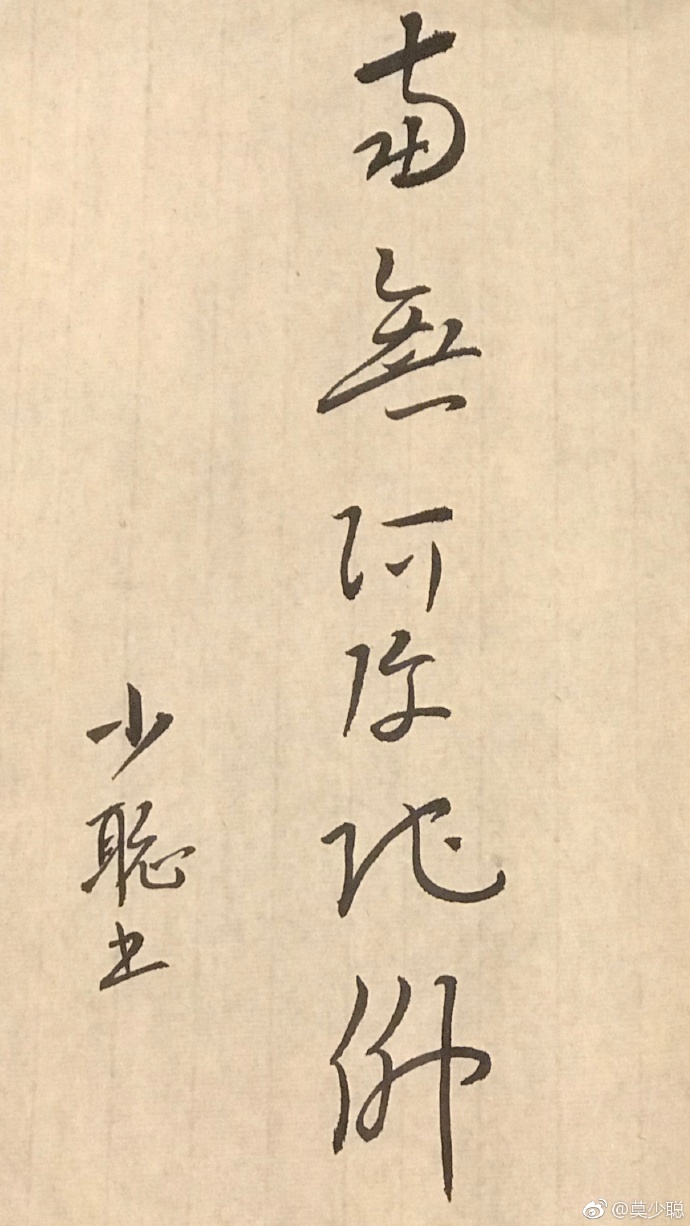 南無阿弥陀佛
少聪书
@莫少聪